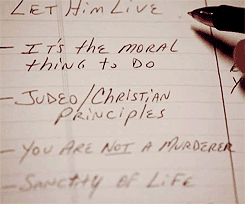 LET HIM LIVE
- IT'S THE MORAL
THING TO DO
- JUDEO/CHRISTIAN
PRINCIPLES
- YOU ARE NOT A MURDERER
- SANCTITY OF LIFE